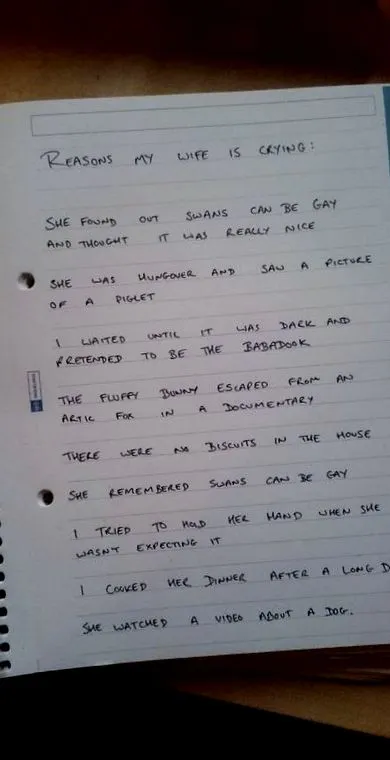 REASONS MY WIFE IS CRYING:
SHE FOUND OUT SWANS CAN BE GAY
AND THOUGHT IT WAS REALLY NICE
SHE WAS HUNGOVER AND SAW A PICTURE
OF A PIGLET
I WAITED UNTIL IT WAS DARK AND
PRETENDED TO BE THE BABADOOK
THE FLUFFY BUNNY ESCAPED FROM AN
ARTIC FOX IN A DOCUMENTARY
THERE WERE NO BISCUITS IN THE HOUSE
SHE REMEMBERED SWANS CAN BE GAY
I TRIED TO HOLD HER HAND WHEN SHE
WASNT EXPECTING IT
I COOKED HER DINNER AFTER A LONG D
SHE WATCHED A VIDEO ABOUT A DOG.